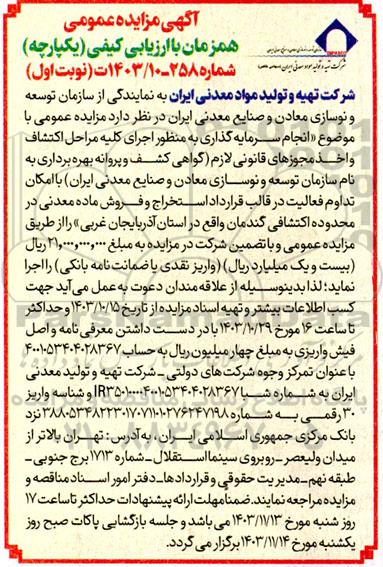 آگهی مزایده عمومی
همزمان با ارزیابی کیفی (یکپارچه)
شماره ۲۵۸-۱۴۰۳/۱۰ت (نوبت اول)
شرکت تهیه و تولید مواد معدنی ایران
شرکت تهیه و تولید مواد معدنی ایران به نمایندگی از سازمان توسعه
و نوسازی معادن و صنایع معدنی ایران در نظر دارد مزایده عمومی با
موضوع «انجام سرمایه گذاری به منظور اجرای کلیه مراحل اکتشاف
و اخذ مجوزهای قانونی لازم (گواهی کشف و پروانه بهره برداری به
نام سازمان توسعه و نوسازی معادن و صنایع معدنی ایران) با امکان
تداوم فعالیت در قالب قرارداد استخراج و فروش ماده معدنی در
محدوده اکتشافی گندمان واقع در استان آذربایجان غربی» را از طریق
مزایده عمومی و با تضمین شرکت در مزایده به مبلغ ۲۱,۰۰۰,۰۰۰,۰۰۰ ریال
(بیست و یک میلیارد ریال) (واریز نقدی یا ضمانت نامه بانکی) را اجرا
نماید؛ لذا بدینوسیله از علاقه مندان دعوت به عمل می آید جهت
کسب اطلاعات بیشتر و تهیه اسناد مزایده از تاریخ ۱۴۰۳/۱۰/۱۵ و حداکثر
تا ساعت ۱۶ مورخ ۱۴۰۳/۱۰/۲۹ با در دست داشتن معرفی نامه و اصل
فیش واریزی به مبلغ چهار میلیون ریال به حساب ۴۰۰۱۰۵۳۴۰۴۰۲۸۳۶۷
با عنوان تمرکز وجوه شرکت های دولتی - شرکت تهیه و تولید مواد معدنی
ایران به شماره شبا و شناسه واریز
۳۰ رقمی به شماره نزد
بانک مرکزی جمهوری اسلامی ایران، به آدرس: تهران بالاتر از
میدان ولیعصر - روبروی سینما استقلال - شماره ۱۷۱۳ برج جنوبی -
طبقه نهم - مدیریت حقوقی و قراردادها - دفتر امور اسناد مناقصه و
مزایده مراجعه نمایند. ضمنا مهلت ارائه پیشنهادات حداکثر تا ساعت ۱۷
روز شنبه مورخ ۱۴۰۳/۱۱/۱۳ می باشد و جلسه بازگشایی پاکات صبح روز
یکشنبه مورخ ۱۴۰۳/۱۱/۱۴ برگزار می گردد.